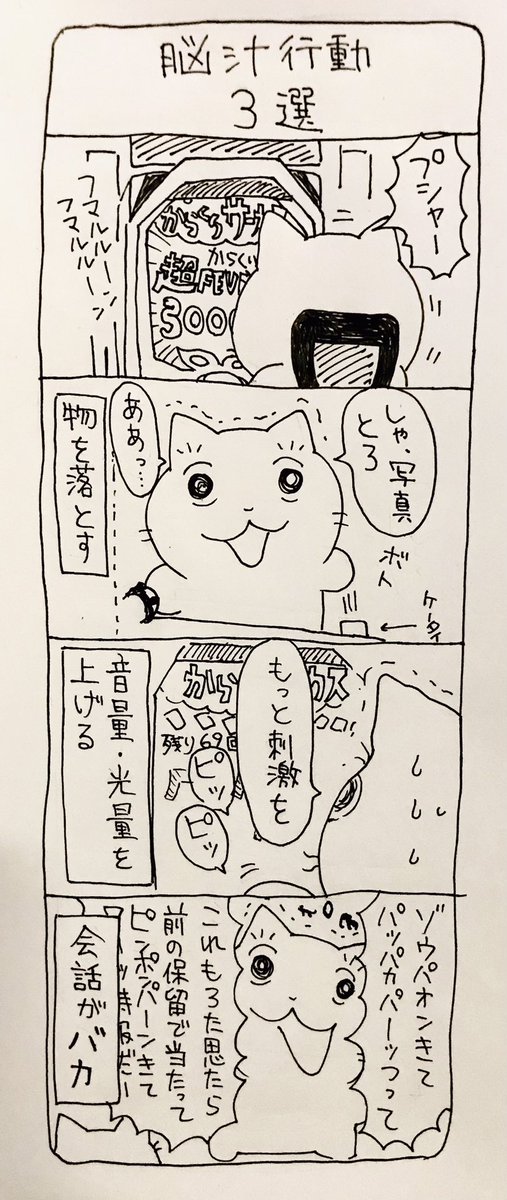 脳汁行動
3選
プシャー
フマルルーン
フマルルーン
からくりサーカ
からくり
超FEV
3000
しゃ、写真
とろ
ああっ…
物を落とす
ボト
ケータイ
もっと刺激を
音量・光量を
上げる
から
カス
残り69回
ピッ
ピッ
ゾウパオンきて
パッパカパーッつって
これもろた思たら
前の保留で当たって
ピンポンパーンきて
会話がバカ